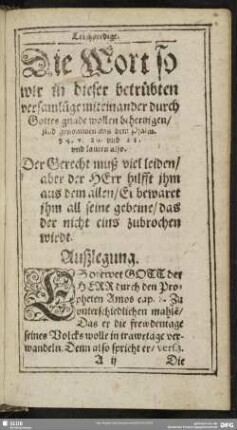 Leichpredigt.
Die Wort so
wir in dieser betrübten
versamlūge miteinander durch
Gottes gnade wollen behertzigen/
sind genommen aus dem Psalm.
34. v. 20. vnd 21.
vnd lauten also.
Der Gerecht muß viel leiden/
aber der HErr hilfft jhm
aus dem allen/ Er bewaret
jhm all seine gebeine/ das
der nicht eins zubrochen
wirdt.
Außlegung.
GOTT der
HERR durch den Pro-
pheten Amos cap. 8. Zu
vnterschiedlichen mahlē/
Das er die frewdentage
seines Volcks wolle in trawrtage ver-
wandeln. Denn also spricht er/
A ij Die